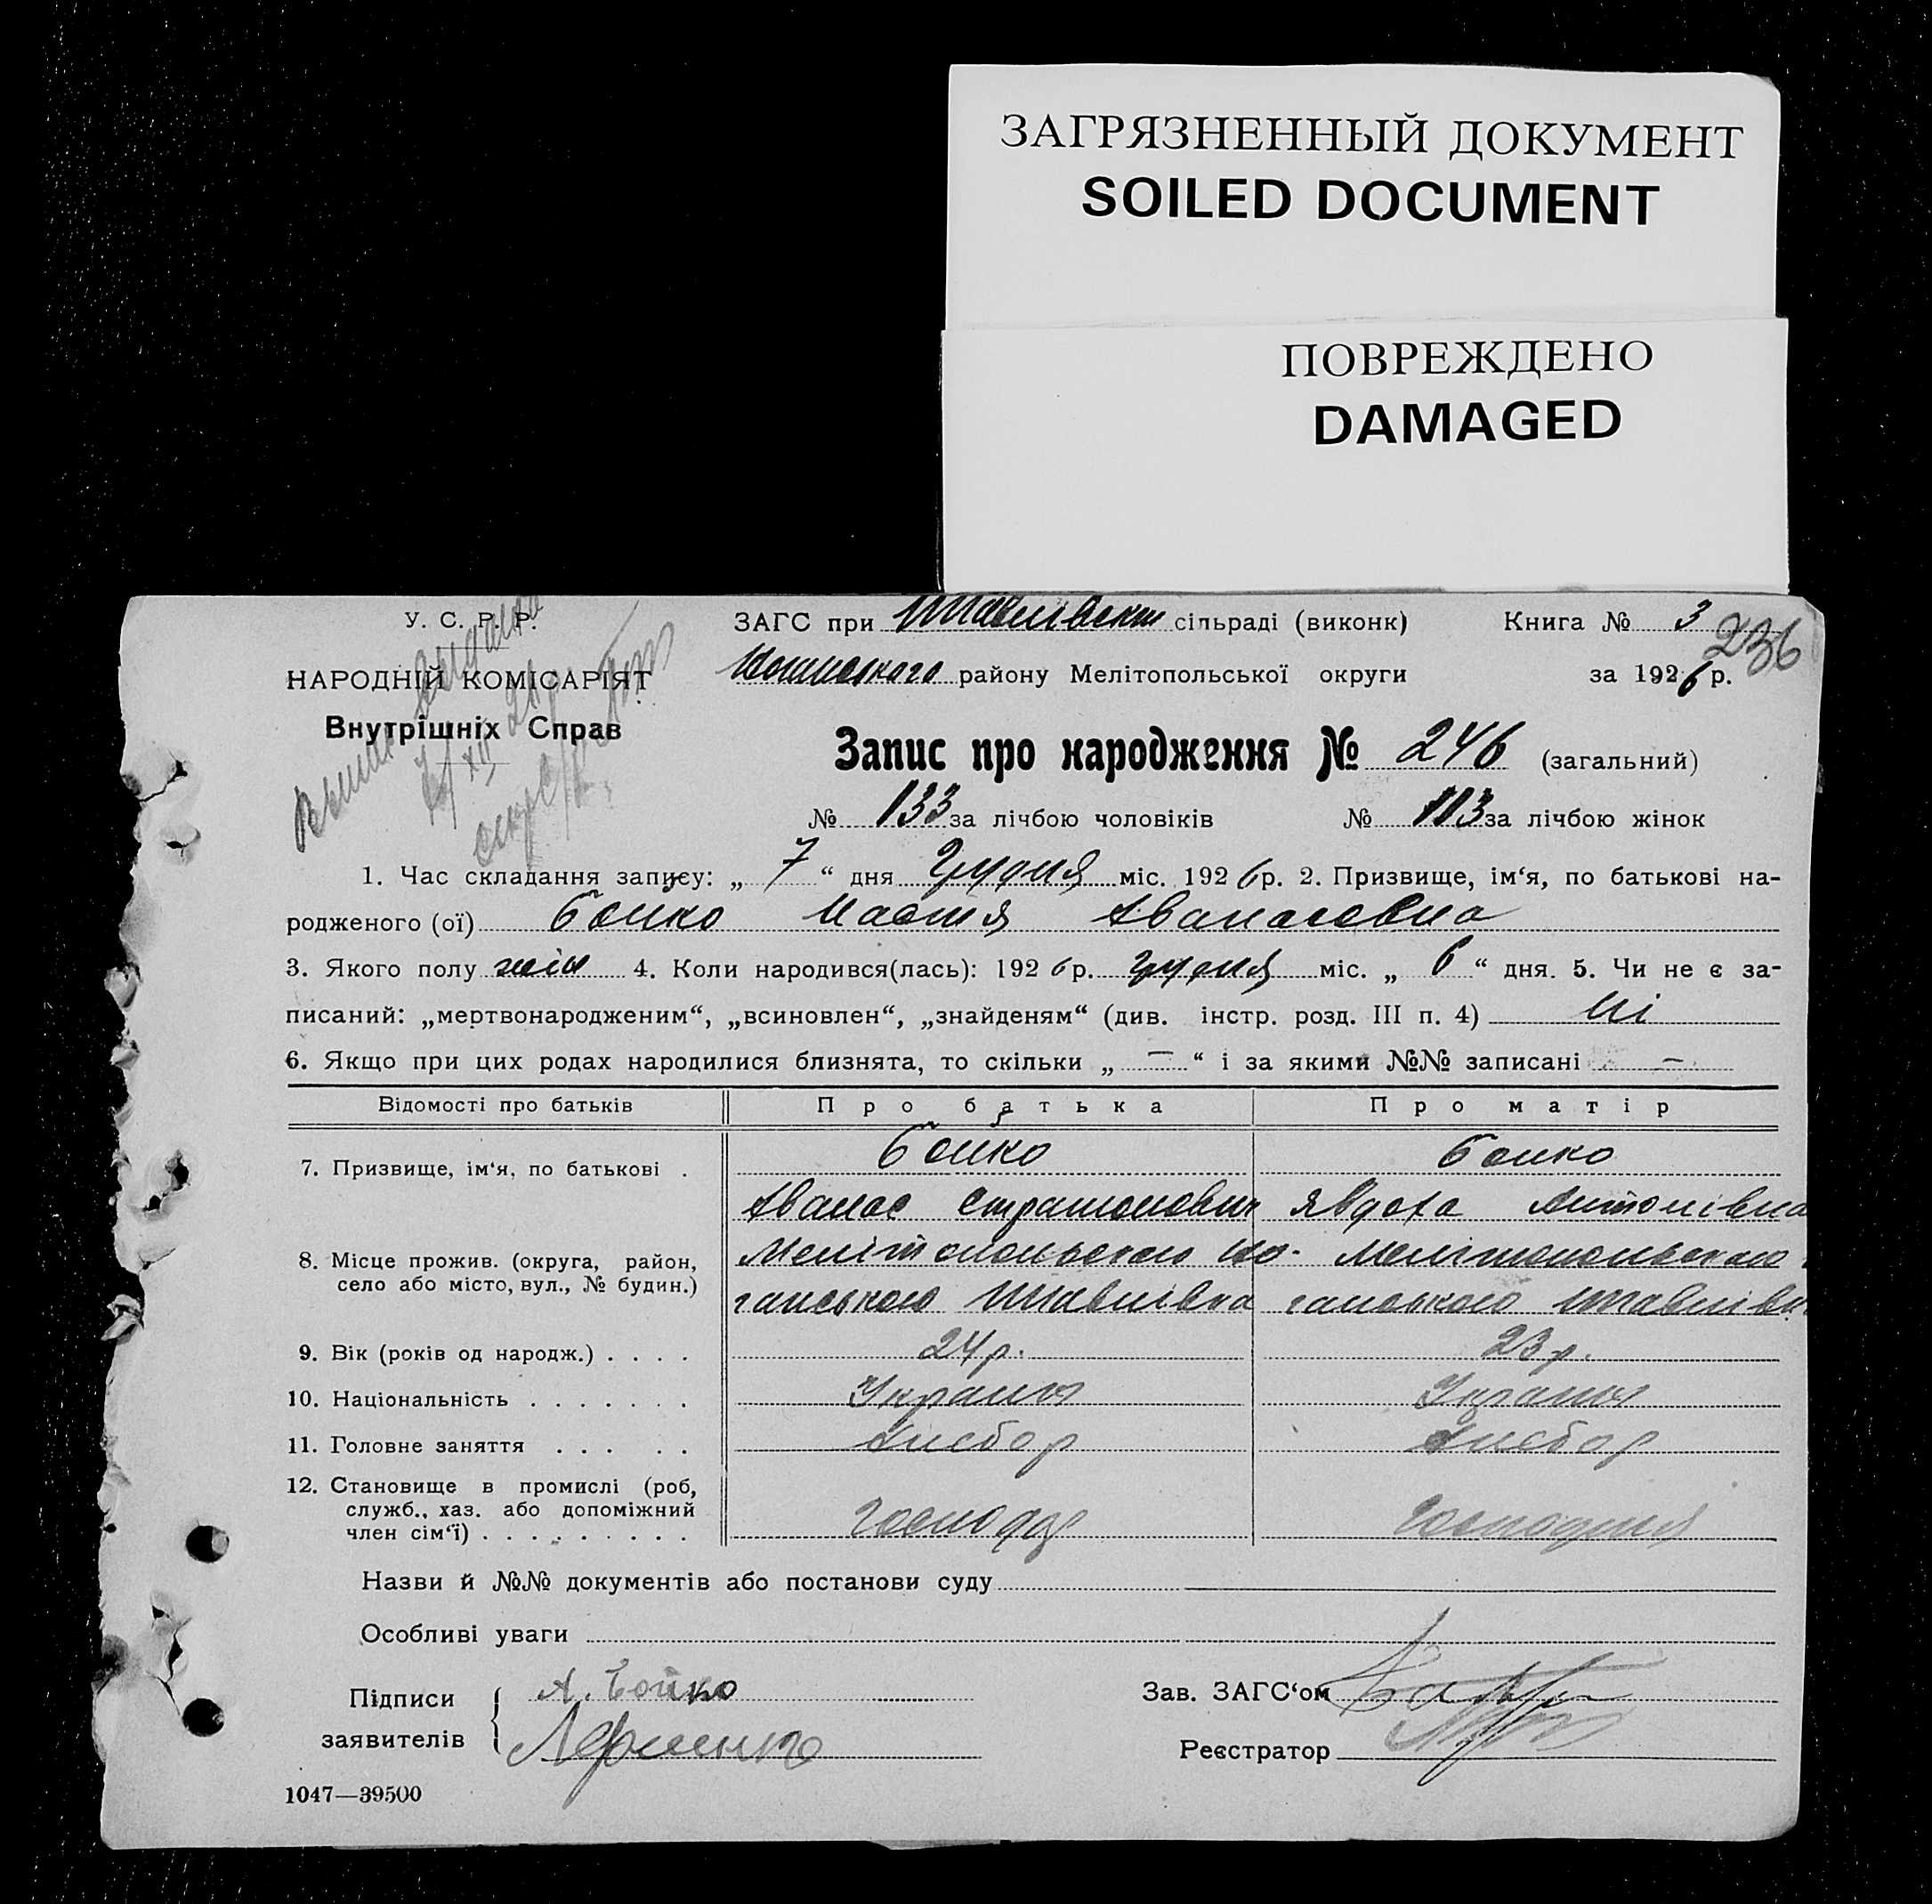 ЗАГРЯЗНЕННЫЙ ДОКУМЕНТ
SOILED DOCUMENT
ПОВРЕЖДЕНО
DAMAGED
У. С. Р. Р.
НАРОДНІЙ КОМІСАРІЯТ
Внутрішніх Справ
ЗАГС при сільраді (виконк) Книга № 3
236
району Мелітопольської округи за 1926 р.
Запис про народження № 246 (загальний)
№ 133 за лічбою чоловіків № 113 за лічбою жінок
1. Час складання запису: „ 7 “ дня Грудня міс. 1926 р. 2. Призвище, ім‘я, по батькові на-
родженого (ої) Бойко Настя Аванасовна
3. Якого полу жін 4. Коли народився(лась): 1926 р. грудня міс. „ 6 “ дня. 5. Чи не є за-
писаний: „мертвонародженим“, „всиновлен“, „знайденям“ (див. інстр. розд. III п. 4) Ні
6. Якщо при цих родах народилися близнята, то скільки „ — “ і за якими №№ записані —
Відомості про батьків Про батька Про матір
7. Призвище, ім‘я, по батькові . Бойко Бойко
Аванас Стратонович Явдоха Антонівна
8. Місце прожив. (округа, район, село або місто, вул., № будин.) Мелітопольского Мелітопольского
9. Вік (років од народж.) . . . . 24 р. 23 р.
10. Національність . . . . . . .
11. Головне заняття . . . . . Хлебор Хлебор
12. Становище в промислі (роб,
служб., хаз. або допоміжний
член сім‘ї) . . . . . . . . . Господар Господиня
Назви й №№ документів або постанови суду
Особливі уваги
Підписи А. Бойко Зав. ЗАГС‘ом
заявителів Реєстратор
1047—39500